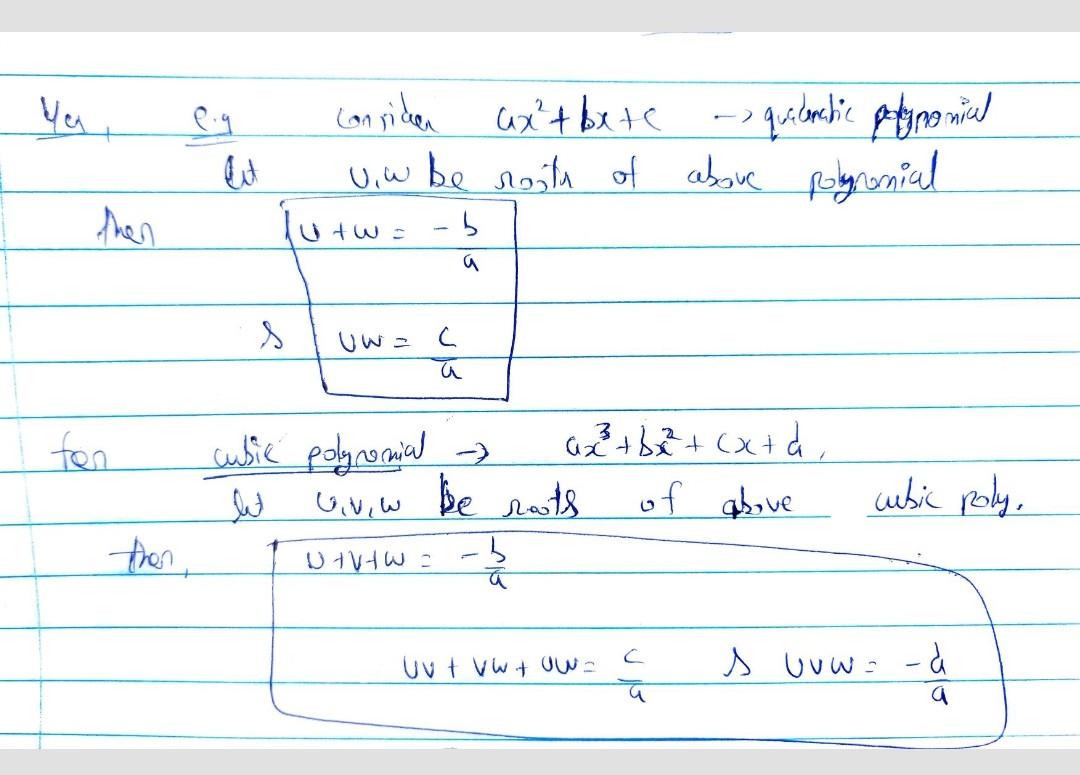 Yes, e.g consider ax² + bx + c -> quadratic polynomial
let u,w be roots of above polynomial
then u + w = -b/a
& uw = c/a
for cubic polynomial -> ax³ + bx² + cx + d,
let u,v,w be roots of above cubic poly.
then, u + v + w = -b/a
uv + vw + uw = c/a & uvw = -d/a